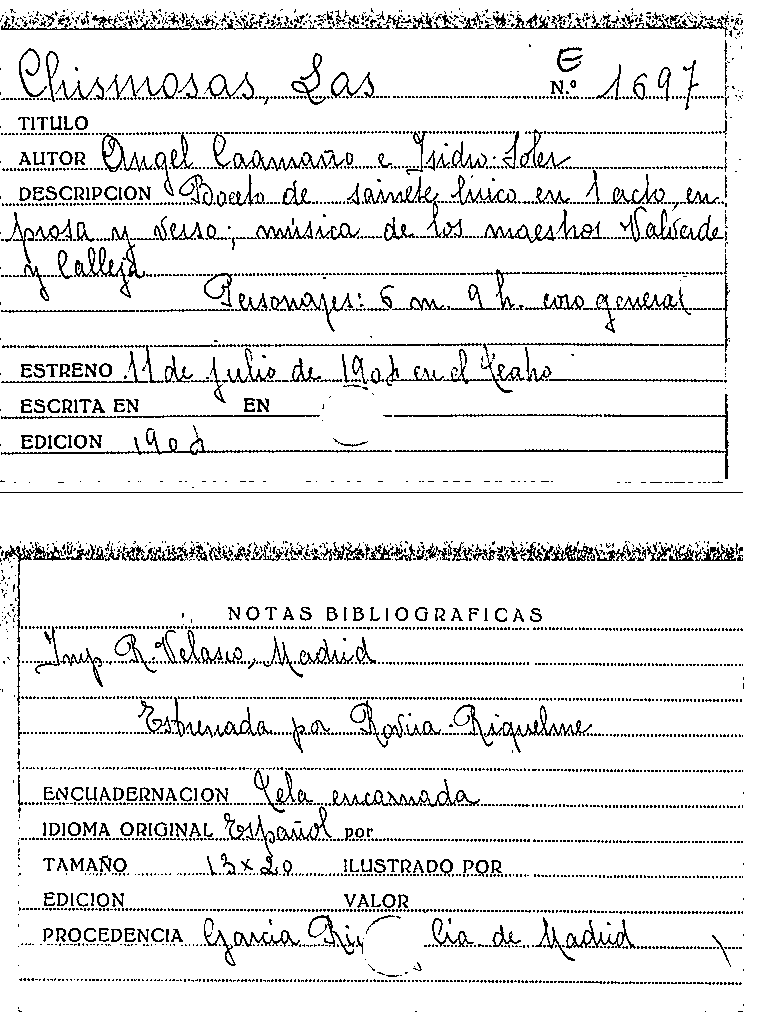 Chismosas, Las
E
N.º 1697
TITULO
AUTOR Angel Caamaño e Isidro Soler
DESCRIPCION Boceto de sainete lírico en 1 acto, en
prosa y verso; música de los maestros Valverde
y Calleja
Personajes: 6 m 9 h. coro general
ESTRENO 11 de julio de en el Teatro
ESCRITA EN EN
EDICION
NOTAS BIBLIOGRAFICAS
Imp R. Velasco, Madrid
Estrenada por Rovira-Riquelme
ENCUADERNACION Tela encarnada
IDIOMA ORIGINAL Español por
TAMAÑO 13 x 20 ILUSTRADO POR
EDICION VALOR
PROCEDENCIA García Cía de Madrid